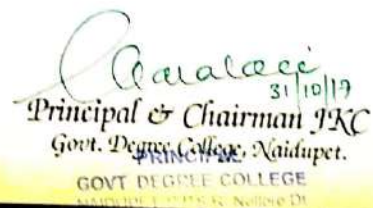 31/10/19
Principal & Chairman JKC
Govt. Degree College, Naidupet.
PRINCIPAL
GOVT DEGREE COLLEGE
Nellore Dt